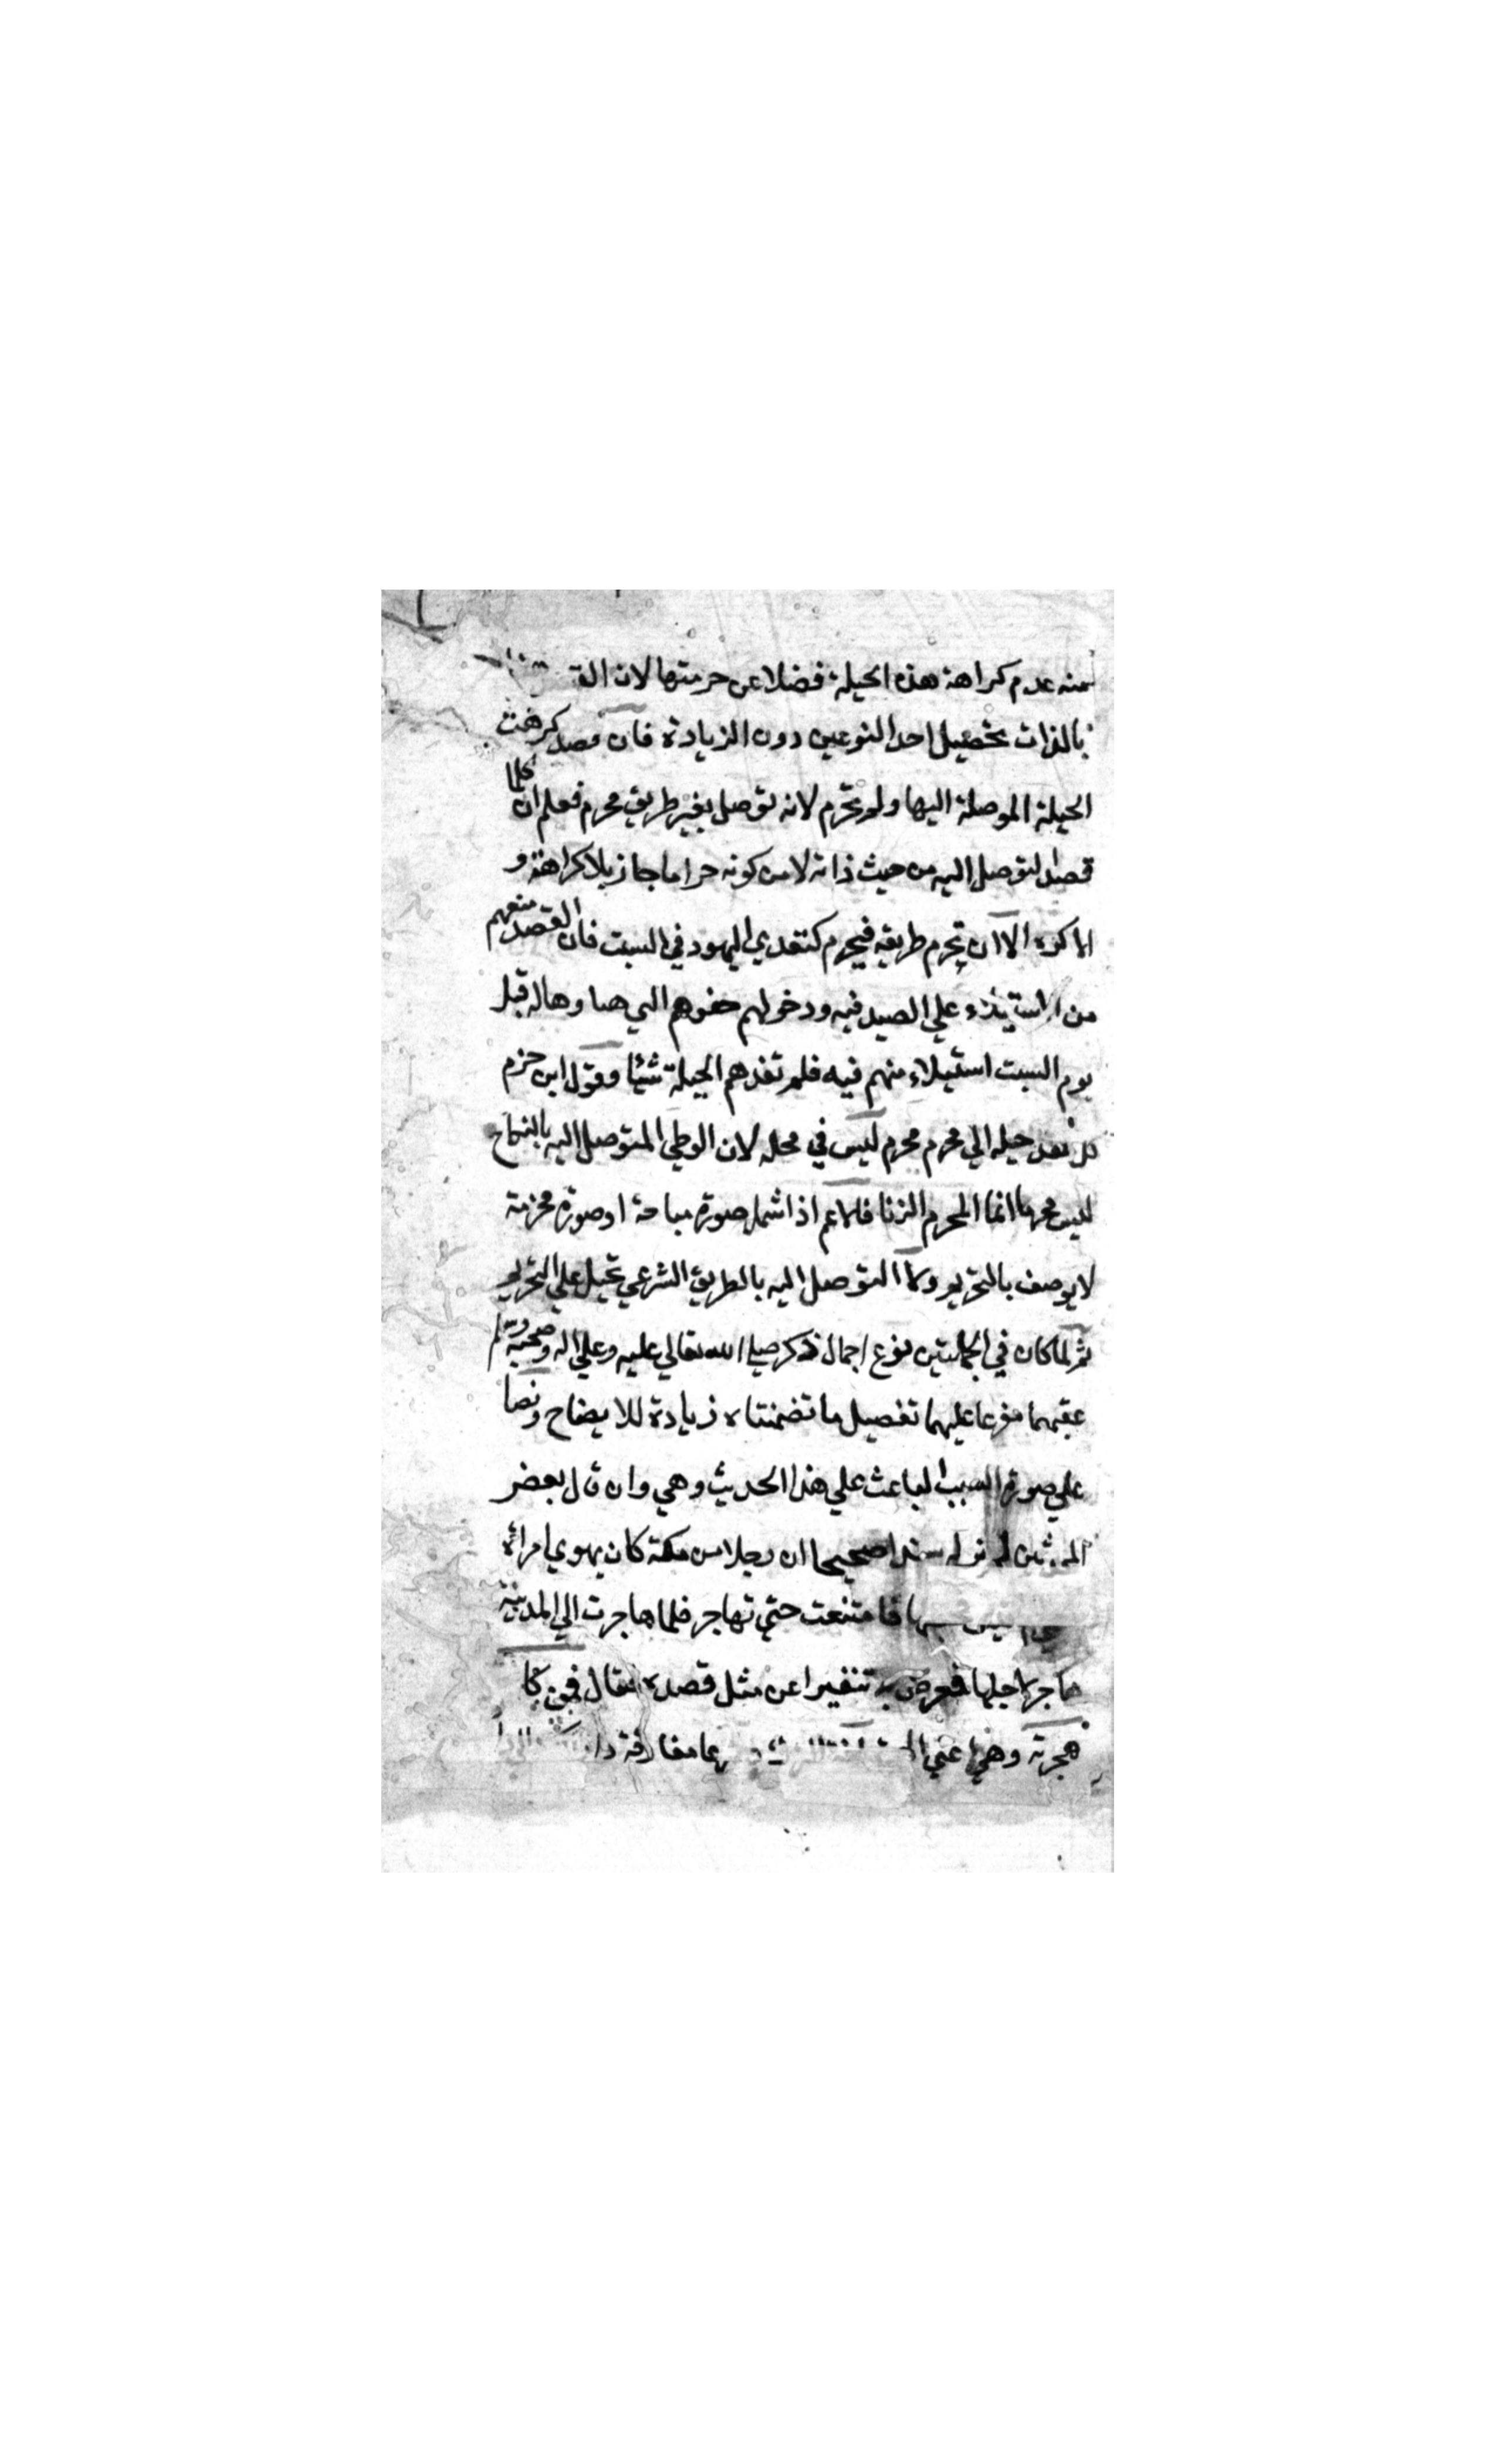 منه عدم كراهة هذه الحيلة فضلا عن حرمتها لان
بالذات تحصيل احد النوعين دون الزيادة فان قصد كرهت
الحيلة الموصلة اليها ولم تحرم لانه توصل بغير طريق محرم فعلم ان كلما
قصد التوصل اليه من حيث ذاته لا من كونه حراما جاز بلا كراهة و
الا كره الا ان تحرم طريقه فيحرم كتعدي اليهود في السبت فان القصد منعهم
من الاستيلاء علي الصيد فيه ودخولهم حفرهم التي هيا وهاله قبل
يوم السبت استيلاء منهم فيه فلم تفدهم الحيلة شيئا وقول ابن حزم
حيلة الي محرم محرم ليس في محله لان الوطي المتوصل اليه بالنكاح
ليس محرما انما المحرم الزنا فلاعم اذا شمل صورة مباحة او صورة محرمة
لا يوصف بالتحريم وكما التوصل اليه بالطريق الشرعي تحيل علي التحريم
ثم لما كان في الجملتين نوع اجمال ذكر صلي الله تعالي عليه وعلي اله وصحبه وسلم
عقبهما مفرعا عليهما تفصيل ما تضمنتاه زيادة للايضاح ونصا
علي صورة السبب الباعث علي هذا الحديث وهي وان قال بعض
لم نر له سندا صحيحا ان رجلا من مكة كان يهوي امرأة
فامتنعت حتي تهاجر فلما هاجرت الي المدينة
هاجر لاجلها فعرض به تنفيرا عن مثل قصده فقال فمن كا
هجرته وهي مفارقة